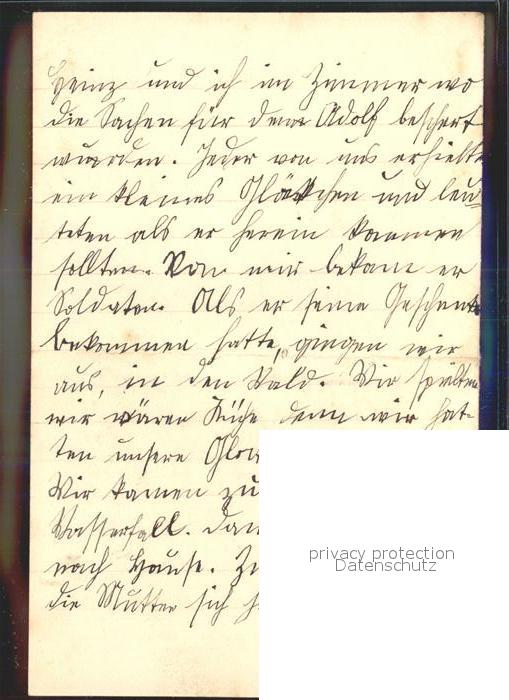 Heinz und ich im Zimmer wo
die Sachen für den Adolf beschert
wurden. Jeder von uns erhielt
ein kleines Glöckchen und leu-
teten als er herein kommen
sollten. Von mir bekam er
Soldaten. Als er seine Geschenk
bekommen hatte, gingen wir
aus, in den Wald. Wir spielten
wir wären Kühe denn wir hat-
ten unsere Glo
Wir kamen zu
Wasserfall. Dan
nach Hause. Zu
die Mutter sich
privacy protection
Datenschutz